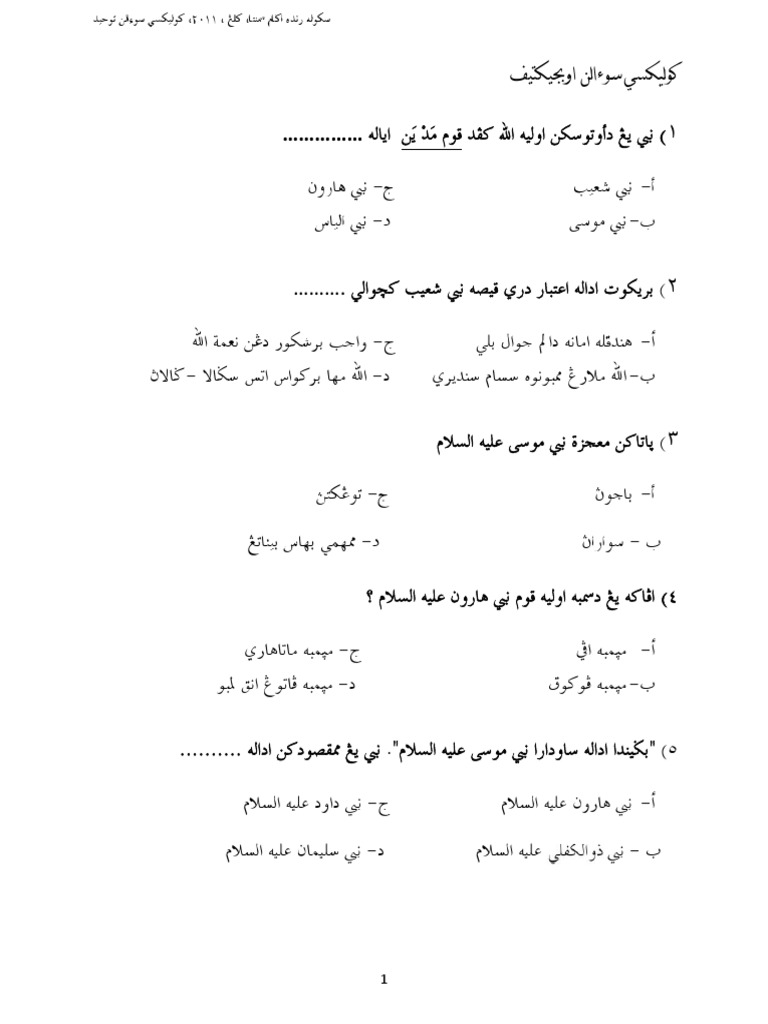 سكوله رنده اݢام مننتاء كلڠ ، ٢٠١١، كوليكسي سوءالن توحيد
كوليكسي سوءالن اوبجيكتيف
١) نبي يڠ دأوتوسكن اوليه الله كڤد قوم مَدْ يَن اياله ...............
أ- نبي شعيب ج- نبي هارون
ب- نبي موسى د- نبي الياس
٢) بريكوت اداله اعتبار دري قيصه نبي شعيب كچوالي ..........
أ- هندقله امانه دالم جوال بلي ج- واجب برشكور دڠن نعمة الله
ب- الله ملارڠ ممبونوه سسام سنديري د- الله مها بركواس اتس سݢالا - ݢالاڽ
٣) ڽاتاكن معجزة نبي موسى عليه السلام
أ- باجوڽ ج- توڠكتڽ
ب - سواراڽ د- ممهمي بهاس بيناتڠ
٤) اڤاكه يڠ دسمبه اوليه قوم نبي هارون عليه السلام ؟
أ- مڽمبه اڤي ج- مڽمبه ماتاهاري
ب- مڽمبه ڤوكوق د- مڽمبه ڤاتوڠ انق لمبو
٥) "بݢيندا اداله ساودارا نبي موسى عليه السلام". نبي يڠ ممقصودكن اداله ..........
أ- نبي هارون عليه السلام ج- نبي داود عليه السلام
ب - نبي ذوالكفلي عليه السلام د- نبي سليمان عليه السلام
1